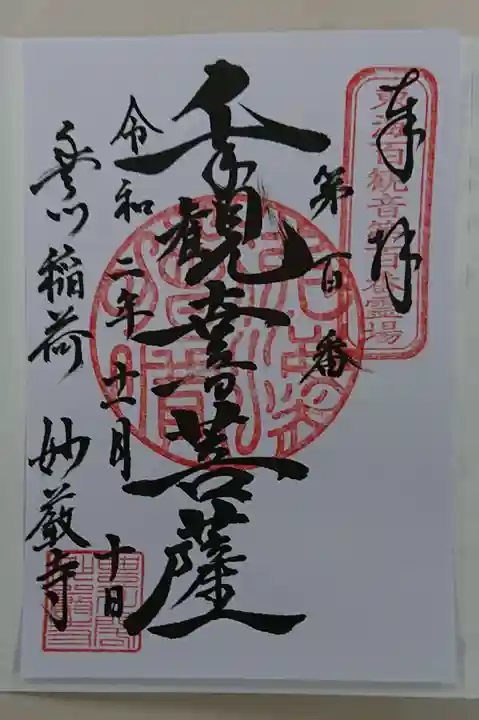 奉拝
東海百観音第百番霊場
第百番
千手観世音菩薩
令和二年十一月十日
豊川稲荷 妙厳寺